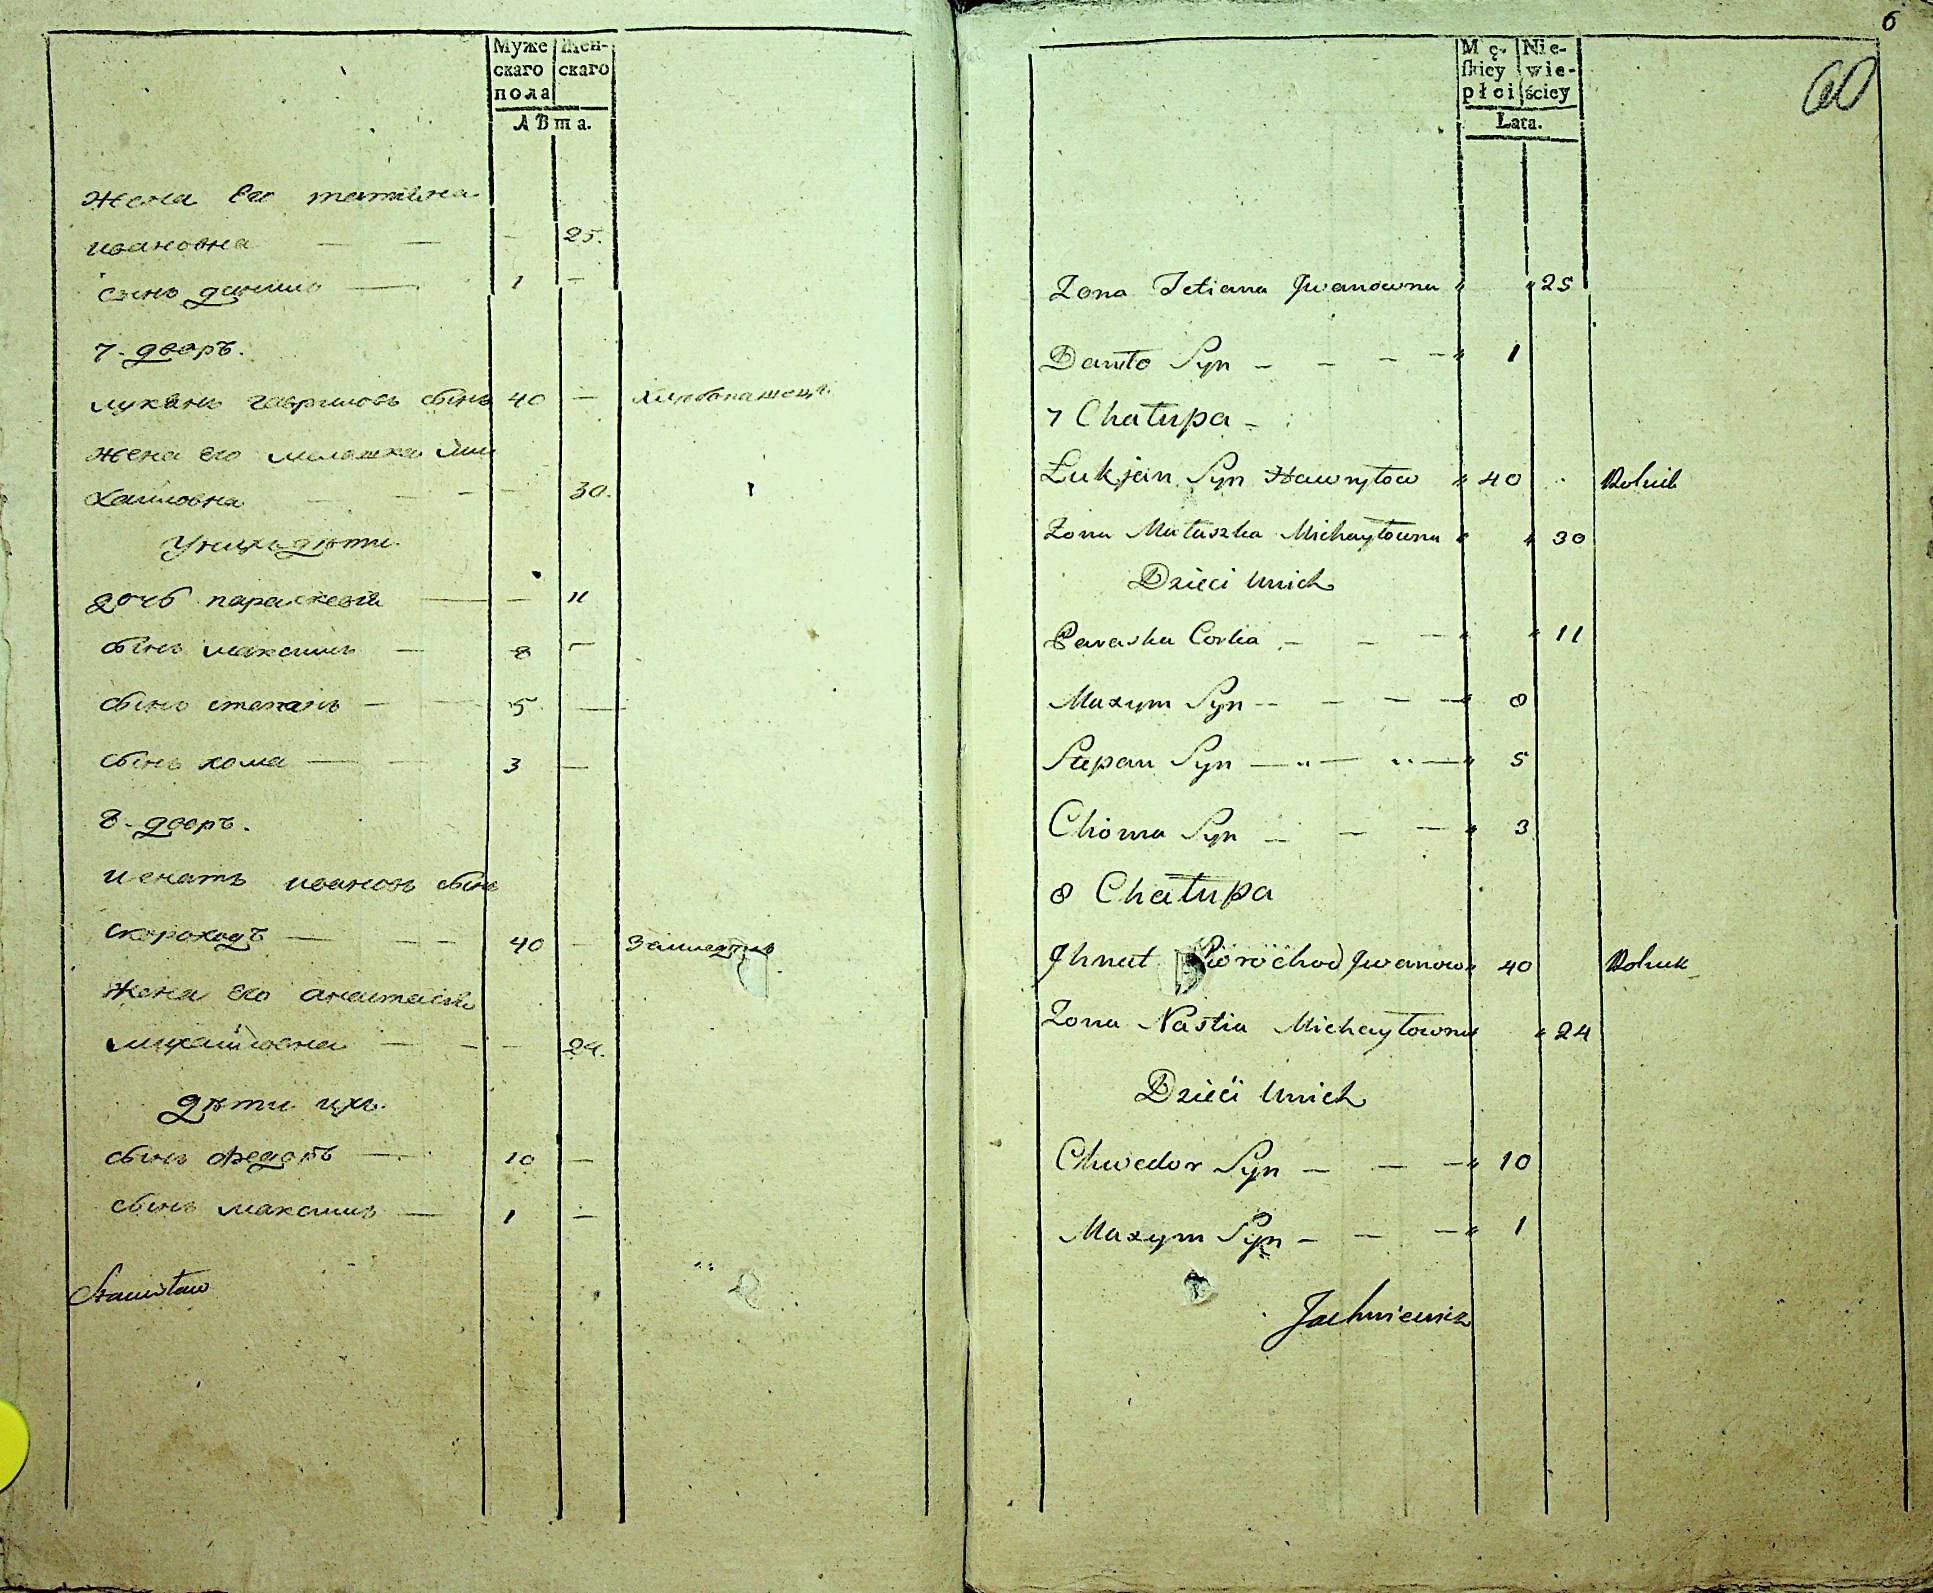 Муже Жен-
скаго скаго
пола
лѣта.
жена его татиѣна
ивановна — — — 25.
сынъ данило — 1 —
7. дворъ.
лукянъ гавриловъ сынъ 40 — хлѣбопашецъ
жена его милашка ми
хаиловна — — — 30.
унихъ дѣти.
дочь параскевія — — 11
сынъ максимъ — 8 —
сынъ степанъ — — 5 —
сынъ хома — — 3 —
8. дворъ.
игнатъ ивановъ сынъ
скороходъ — — — 40 —
жена его анастасія
михайловна — — — 24.
дѣти ихъ.
сынъ федоръ — 10 —
сынъ максимъ — 1 —
Stanisław
6
60
Mę- Nie-
skiey wie-
płci ściey
Lata.
Zona Tetiana Jwanowna " " 25
Daniło Syn — — — — " 1
7 Chałupa —
Łukjan Syn Hawryłow " 40 Rolnik
Zona Małuszka Michayłowna " " 30
Dzieci unich
Paraska Corka — — — " " 11
Maxym Syn — — — — " 8
Stepan Syn — " — " — " 5
Choma Syn — — — " 3
8 Chałupa
Jhnat Skorochod Jwanow " 40 Rolnik
Zona Nastia Michayłowna " 24
Dzieci unich
Chwedor Syn — — — " 10
Maxym Syn — — — " 1
Jachniewicz